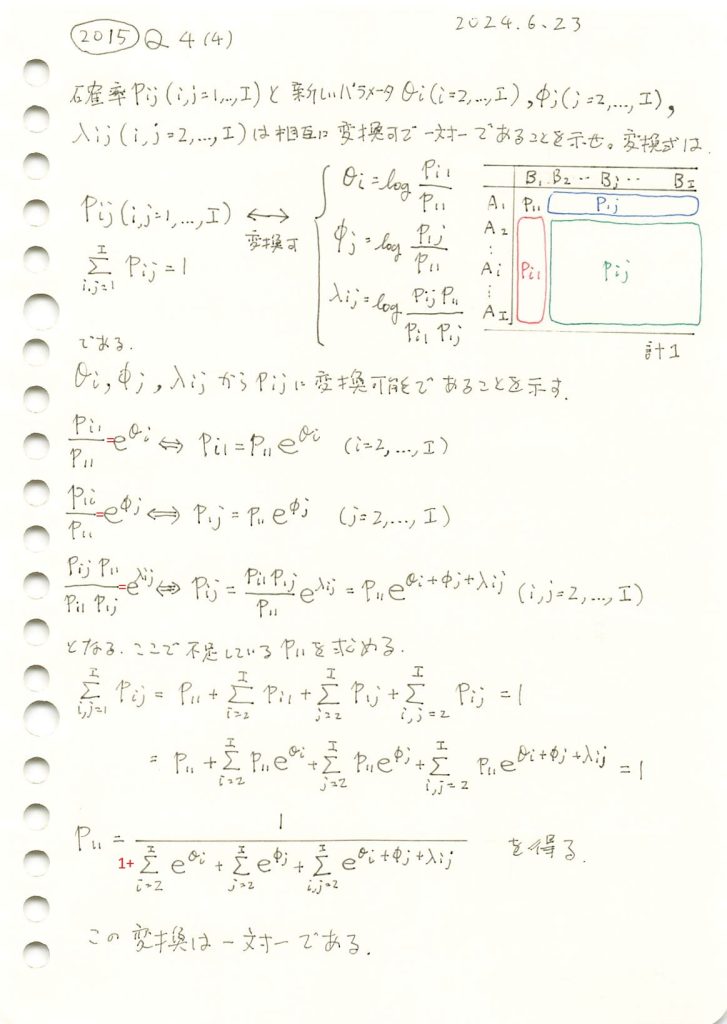 2024.6.23
2015 Q4(4)
確率 Pij (i,j=1,…,I) と 新しいパラメータ θi (i=2,…,I), φj (j=2,…,I),
λij (i,j=2,…,I) は相互に変換可で一対一であることを示せ。変換式は
Pij (i,j=1,…,I) ⟷ 変換可
Σ_{i,j=1}^{I} Pij = 1
θi = log Pi1/P11
φj = log P1j/P11
λij = log PijP11/Pi1P1j
B1 B2 ‥ Bj ‥ BI
A1 P11 P1j
A2
⋮
Ai Pi1 Pij
⋮
AI
計1
である.
θi, φj, λij から Pij に変換可能であることを示す.
Pi1/P11 = e^{θi} ⇔ Pi1 = P11 e^{θi} (i=2,…,I)
P1j/P11 = e^{φj} ⇔ P1j = P11 e^{φj} (j=2,…,I)
PijP11/Pi1P1j = e^{λij} ⇔ Pij = Pi1P1j/P11 e^{λij} = P11 e^{θi+φj+λij} (i,j=2,…,I)
となる. ここで不足している P11 を求める.
Σ_{i,j=1}^{I} Pij = P11 + Σ_{i=2}^{I} Pi1 + Σ_{j=2}^{I} P1j + Σ_{i,j=2}^{I} Pij = 1
= P11 + Σ_{i=2}^{I} P11 e^{θi} + Σ_{j=2}^{I} P11 e^{φj} + Σ_{i,j=2}^{I} P11 e^{θi+φj+λij} = 1
P11 = 1/(1+ Σ_{i=2}^{I} e^{θi} + Σ_{j=2}^{I} e^{φj} + Σ_{i,j=2}^{I} e^{θi+φj+λij}) を得る.
この変換は一対一である.